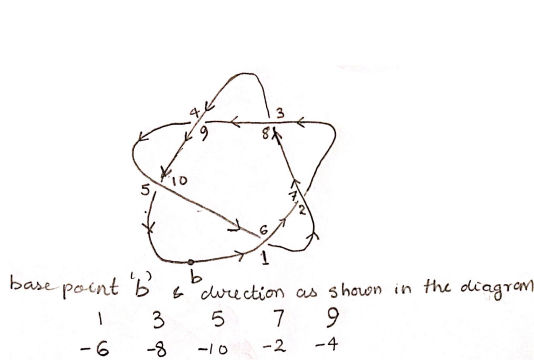 4
3
9
8
5
10
7
2
6
1
b
base point 'b' & direction as shown in the diagram
1 3 5 7 9
-6 -8 -10 -2 -4